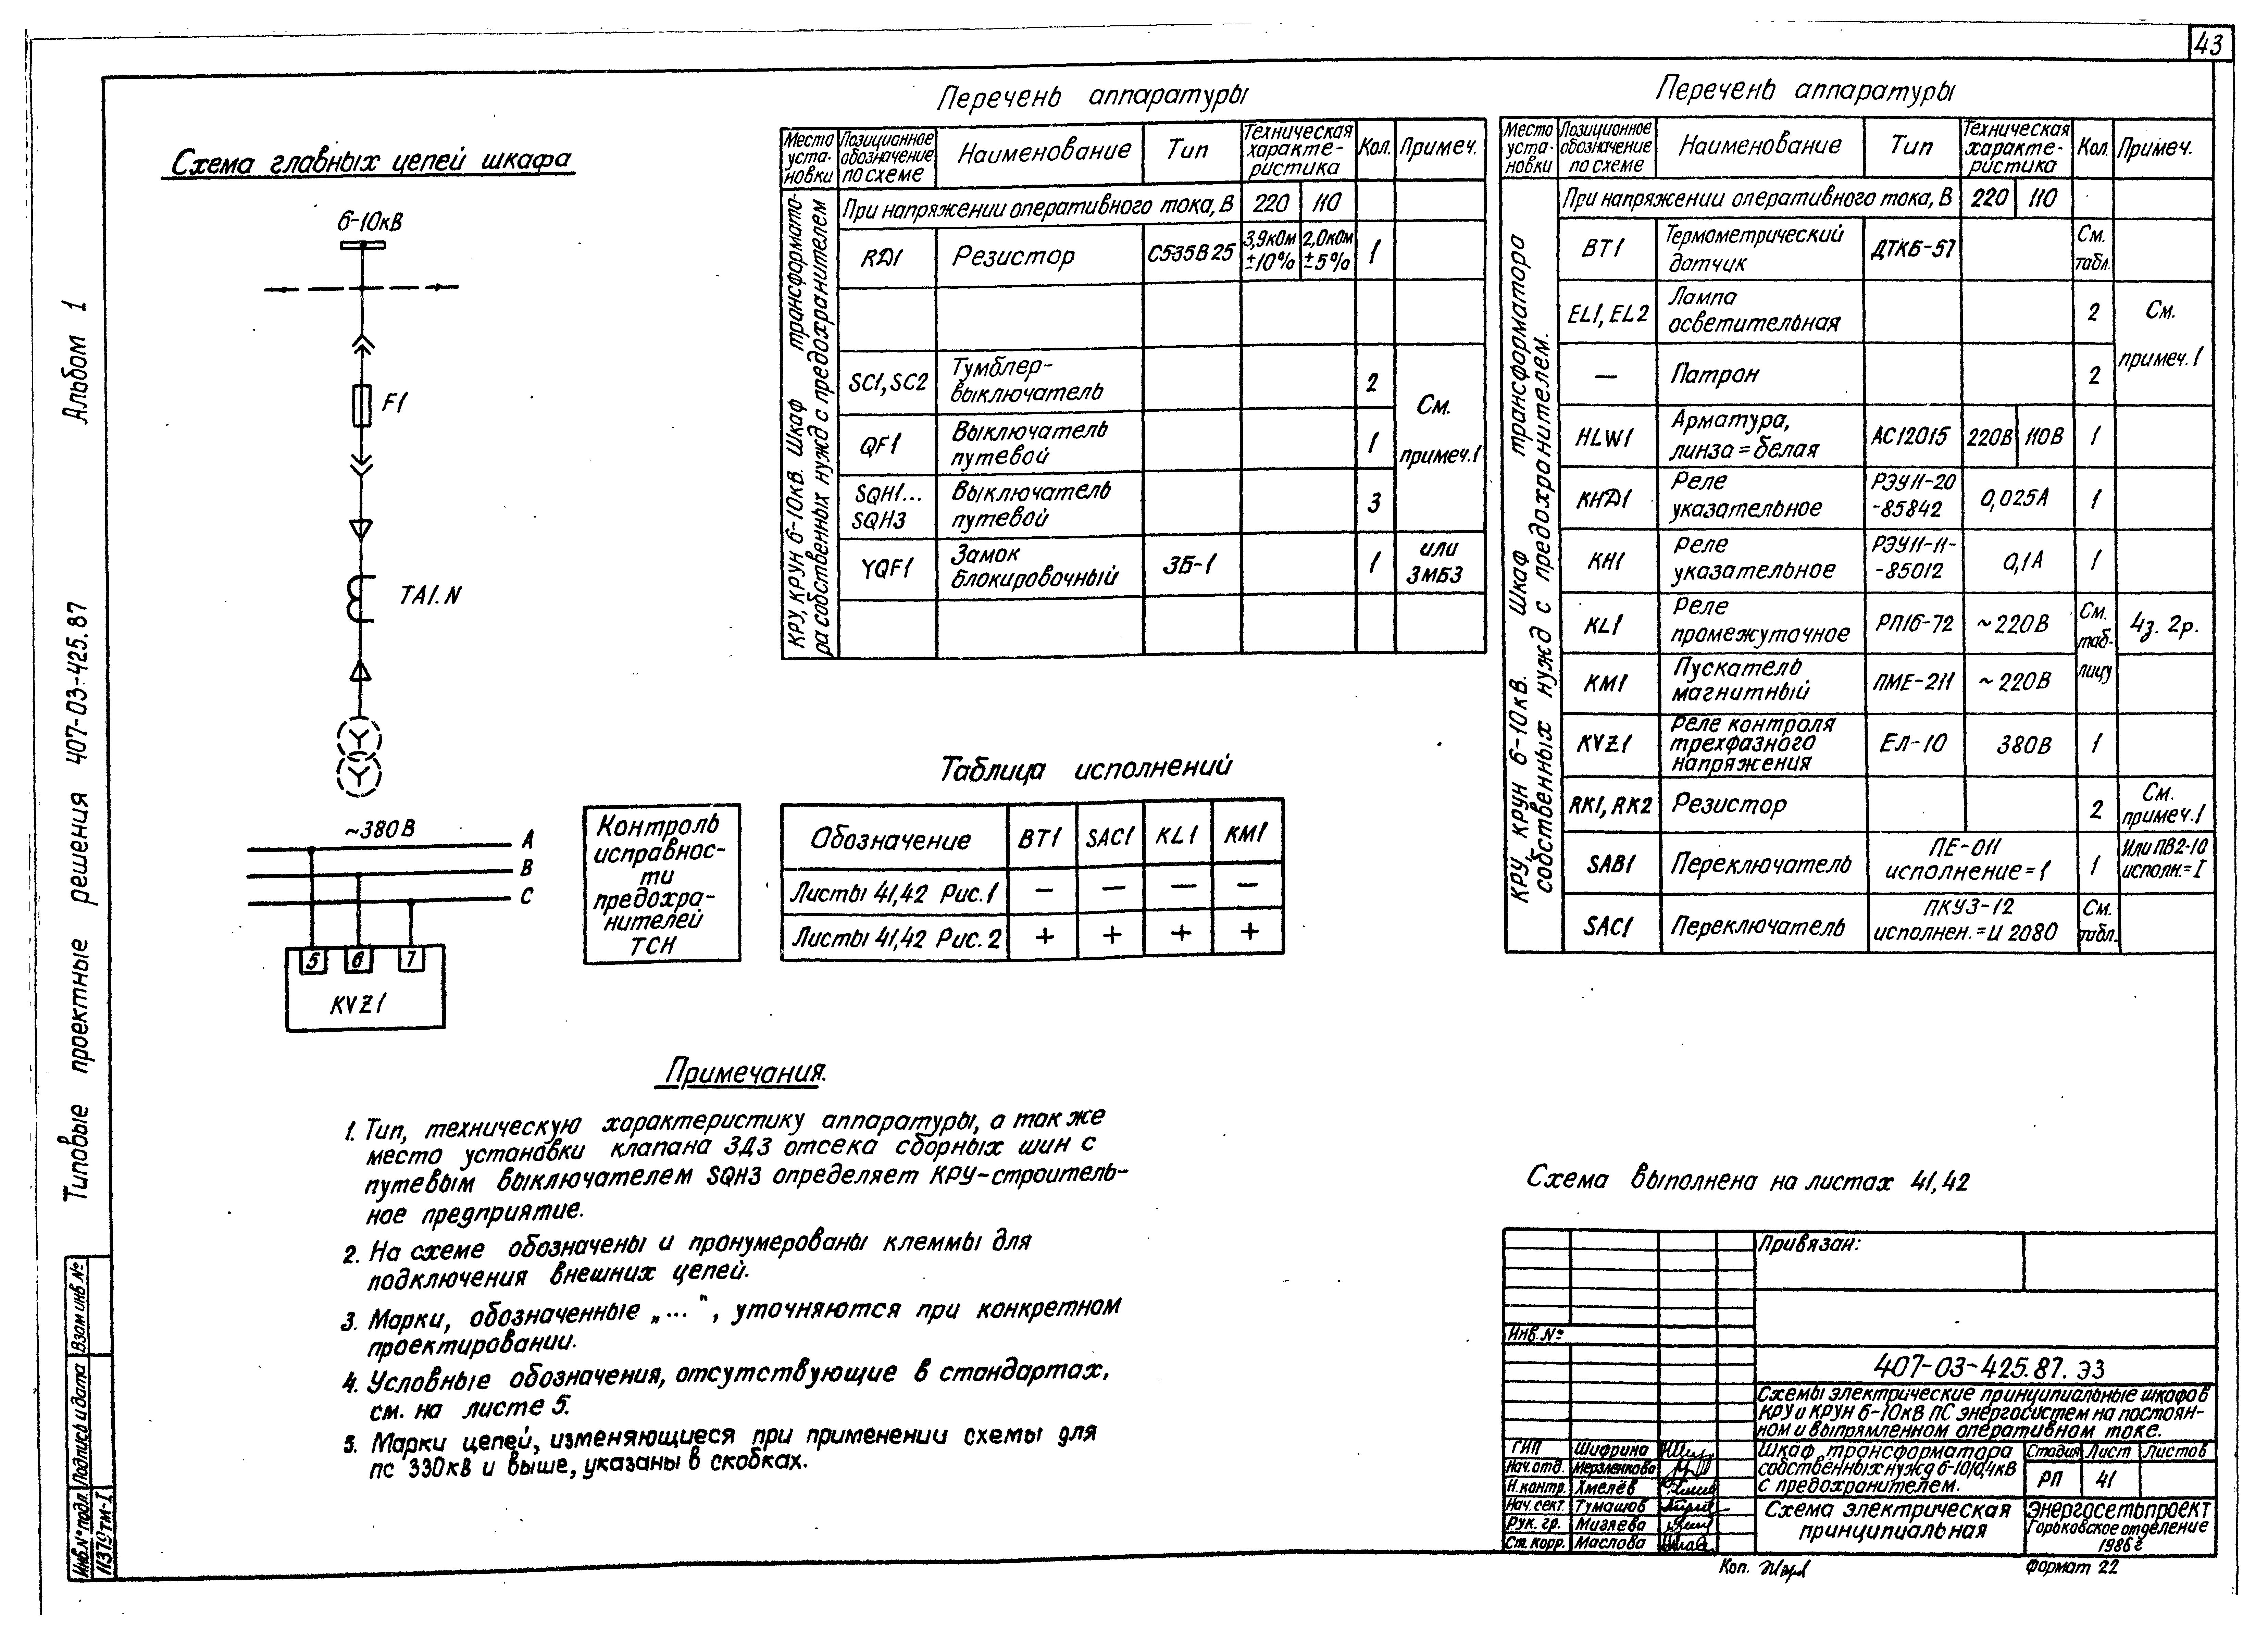 43
Альбом 1
Типовые проектные решения 407-03-425.87
Взам инв №
Подпись и дата
Инв.№ подл.
11379тм-I
Схема главных цепей шкафа
6-10кВ
F1
TA1.N
~380В
A
B
C
5 6 7
KVZ1
Контроль
исправнос-
ти
предохра-
нителей
ТСН
Перечень аппаратуры
Место уста- новки
Позиционное обозначение по схеме
Наименование
Тип
Техническая характе- ристика
Кол.
Примеч.
КРУ, КРУН 6-10кВ. Шкаф трансформато-
ра собственных нужд с предохранителем
При напряжении оперативного тока, В 220 110
RД1 Резистор С535В25 3,9кОм ±10% 2,0кОм ±5% 1
SC1, SC2 Тумблер- выключатель 2
См. примеч.1
QF1 Выключатель путевой 1
SQH1... SQH3 Выключатель путевой 3
YQF1 Замок блокировочный ЗБ-1 1 или ЗМБЗ
Таблица исполнений
Обозначение BT1 SAC1 KL1 KM1
Листы 41,42 Рис.1 — — — —
Листы 41,42 Рис.2 + + + +
Перечень аппаратуры
Место уста- новки
Позиционное обозначение по схеме
Наименование
Тип
Техническая характе- ристика
Кол.
Примеч.
КРУ, КРУН 6-10кВ. Шкаф трансформатора
собственных нужд с предохранителем.
При напряжении оперативного тока, В 220 110
BT1 Термометрический датчик ДТКБ-57 См. табл.
EL1, EL2 Лампа осветительная 2 См.
примеч.1
— Патрон 2
HLW1 Арматура, линза=белая АС12015 220В 110В 1
KHД1 Реле указательное РЭУ11-20 -85842 0,025А 1
KH1 Реле указательное РЭУ11-11- -85012 0,1А 1
KL1 Реле промежуточное РП16-72 ~220В См. таб- лицу 4з. 2р.
KM1 Пускатель магнитный ПМЕ-211 ~220В
KVZ1 Реле контроля трехфазного напряжения ЕЛ-10 380В 1
RK1, RK2 Резистор 2 См. примеч.1
SAB1 Переключатель ПЕ-011 исполнение=1 1 Или ПВ2-10 исполн.=I
SAC1 Переключатель ПКУ3-12 исполнен.=И 2080 См. табл.
Примечания.
1. Тип, техническую характеристику аппаратуры, а также
место установки клапана ЗДЗ отсека сборных шин с
путевым выключателем SQH3 определяет КРУ-строитель-
ное предприятие.
2. На схеме обозначены и пронумерованы клеммы для
подключения внешних цепей.
3. Марки, обозначенные „...", уточняются при конкретном
проектировании.
4. Условные обозначения, отсутствующие в стандартах,
см. на листе 5.
5. Марки цепей, изменяющиеся при применении схемы для
пс 330кВ и выше, указаны в скобках.
Схема выполнена на листах 41,42
Привязан:
Инв.№
407-03-425.87. ЭЗ
Схемы электрические принципиальные шкафов
КРУ и КРУН 6-10кВ ПС энергосистем на постоян-
ном и выпрямленном оперативном токе.
ГИП Шифрина
Нач.отд. Мерзленкова
Н.контр. Хмелёв
Нач. сект. Тумашов
Рук. гр. Мизяева
Ст. корр. Маслова
Шкаф трансформатора
собственных нужд 6-10/0,4кВ
с предохранителем.
Стадия Лист Листов
РП 41
Схема электрическая
принципиальная
Энергосетьпроект
Горьковское отделение
1986г
Коп.
Формат 22